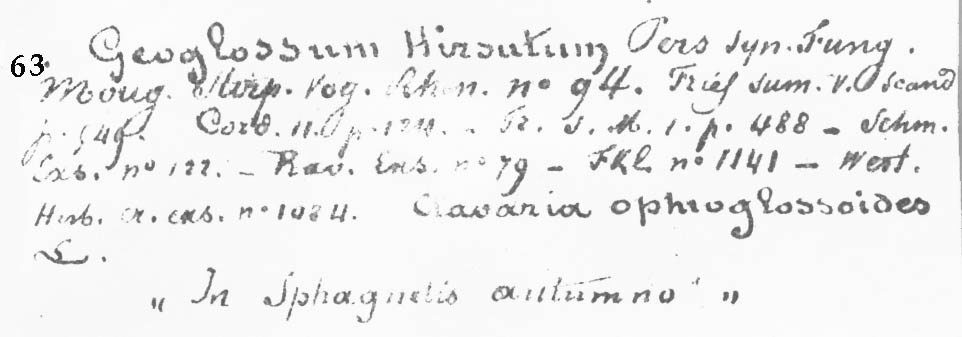 63. Geoglossum Hirsutum Pers syn. Fung.
Moug. Stirp. Vog. Rhen. no 94. Fries sum. v. scand
p. 349. Cord. 11. p. 124. - Fr. S. M. 1. p. 488 - Schm.
Exs. no 122. - Rav. Exs. no 79 - Fkl. no 1141 - West.
Herb. cr. exs. no 1084. Clavaria ophioglossoides
L.
„ In Sphagnetis autumno „